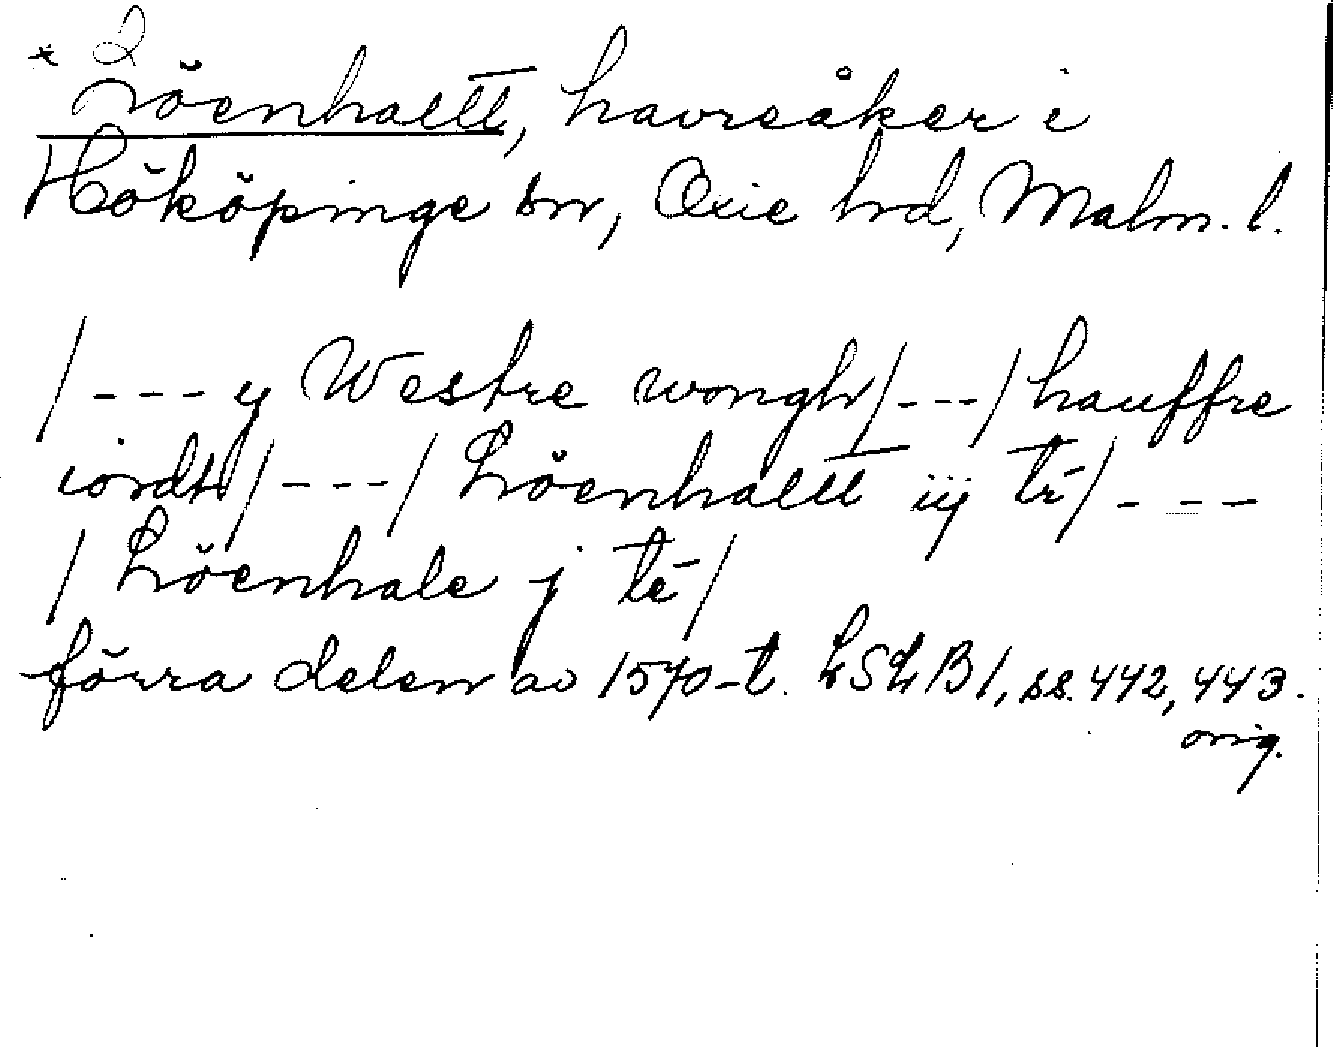 * Löenhallt, havreåker i
Hököpinge sn, Oxie hd, Malm. l.
/--- y Westre wongh/---/hauffre
iordh/---/ Löenhallt iij tr/---
/ Löenhale j te/
förra delen av 1570-t. LSLB1, ss. 442, 443.
orig.